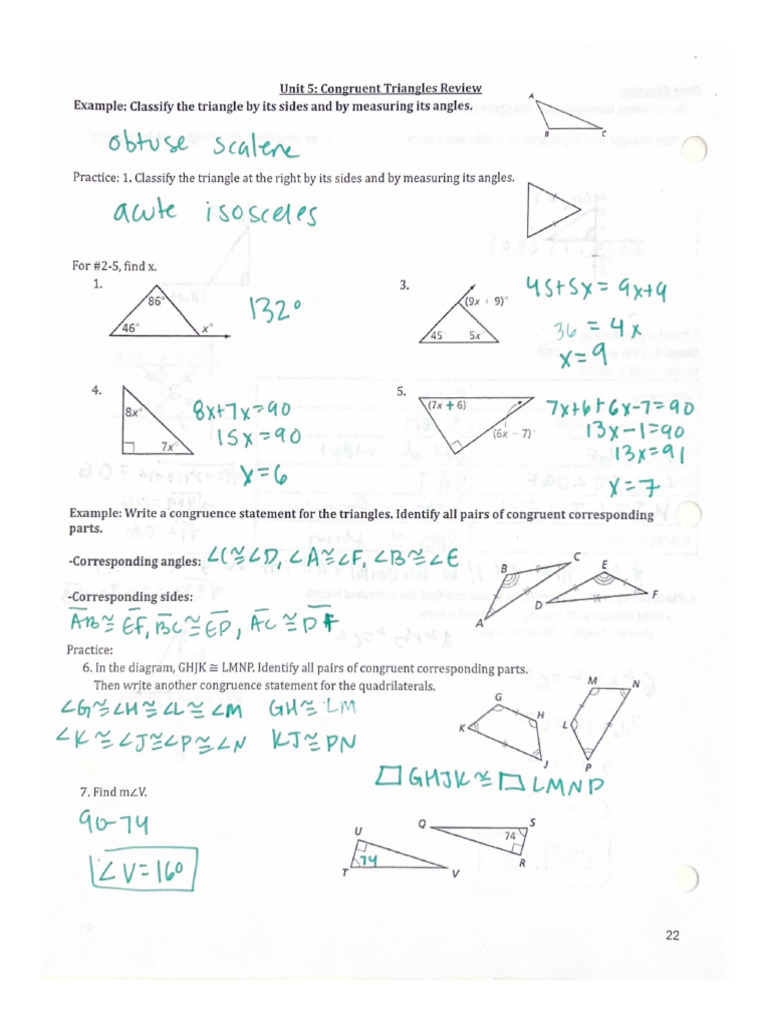 Unit 5: Congruent Triangles Review
Example: Classify the triangle by its sides and by measuring its angles.
A
B
C
obtuse scalene
Practice: 1. Classify the triangle at the right by its sides and by measuring its angles.
acute isosceles
For #2-5, find x.
1.
86°
46°
x°
132°
3.
(9x + 9)°
45
5x
45+5x = 9x+9
36 = 4x
x=9
4.
8x°
7x°
8x+7x=90
15x=90
x=6
5.
(7x + 6)
(6x − 7)°
7x+6+6x-7=90
13x-1=90
13x=91
x=7
Example: Write a congruence statement for the triangles. Identify all pairs of congruent corresponding
parts.
-Corresponding angles: ∠C≅∠D, ∠A≅∠F, ∠B≅∠E
-Corresponding sides:
AB≅EF, BC≅ED, AC≅DF
B
C
E
F
D
A
Practice:
6. In the diagram, GHJK ≅ LMNP. Identify all pairs of congruent corresponding parts.
Then write another congruence statement for the quadrilaterals.
∠G≅∠H≅∠L≅∠M GH≅LM
∠K≅∠J≅∠P≅∠N KJ≅PN
G
H
K
J
M
N
L
P
▱GHJK≅▱LMNP
7. Find m∠V.
90-74
∠V=16°
U
74
T
V
Q
S
74
R
22